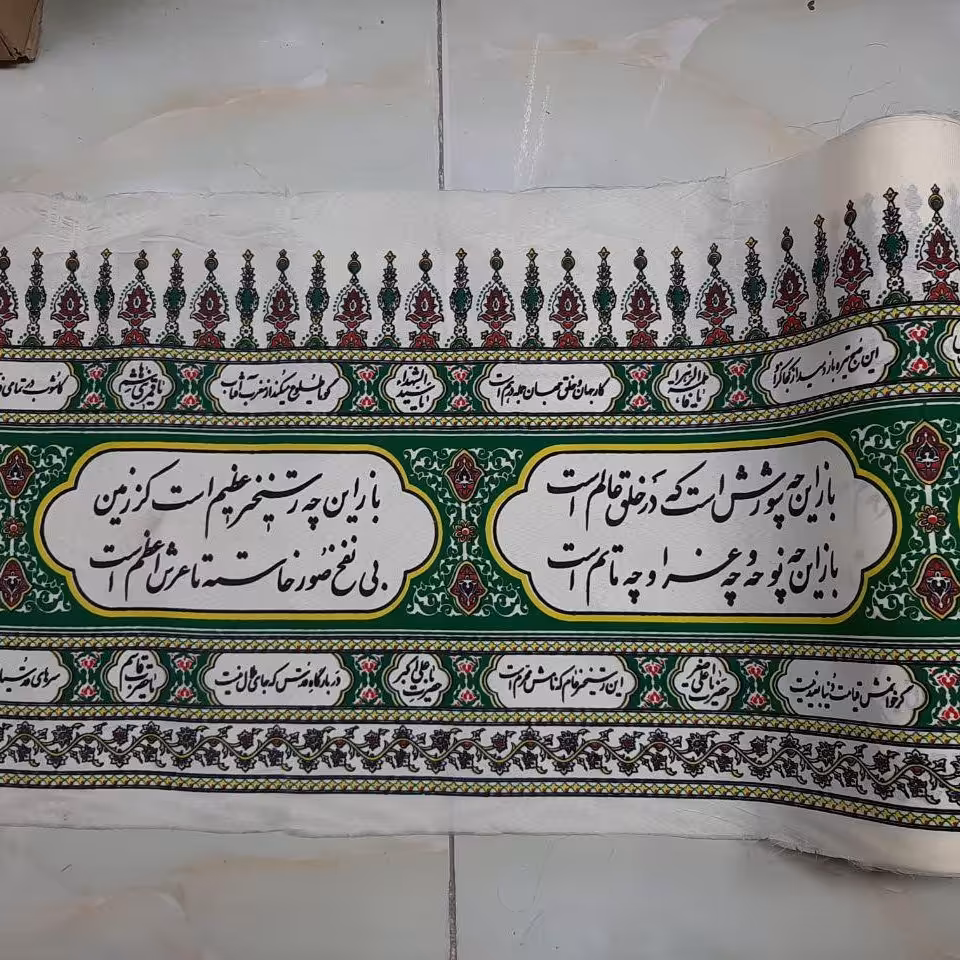 این صبح تیره باز دمید از کجا کزو
یا فاطمة الزهراء
کار جهان و خلق جهان جمله درهم است
یا سید الشهداء
گویا طلوع میکند از مغرب آفتاب
یا قمر بنی هاشم
کاشوب در تمامی
باز این چه شورش است که در خلق عالم است
باز این چه نوحه و چه عزا و چه ماتم است
باز این چه رستخیز عظیم است کز زمین
بی نفخ صور خاسته تا عرش اعظم است
گر خوانمش قیامت دنیا بعید نیست
یا حضرت علی اصغر
این رستخیز عام که نامش محرم است
یا حضرت علی اکبر
در بارگاه قدس که جای ملال نیست
یا حضرت قاسم
سرهای قدسیان